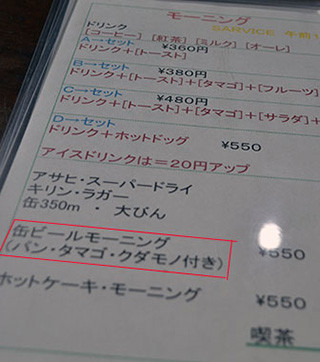 モーニング
ドリンク SARVICE 午前
[コーヒー] [紅茶] [ミルク] [オーレ]
A→セット ¥360円
ドリンク+[トースト]
B→セット ¥380円
ドリンク+[トースト]+[タマゴ]+[フルーツ]
C→セット ¥480円
ドリンク+[トースト]+[タマゴ]+[サラダ]+
D→セット
ドリンク+ホットドッグ ¥550
アイスドリンクは=20円アップ
アサヒ・スーパードライ
キリン・ラガー
缶350m ・ 大びん
缶ビールモーニング ¥550
(パン・タマゴ・クダモノ付き)
ホットケーキ・モーニング ¥550
喫茶